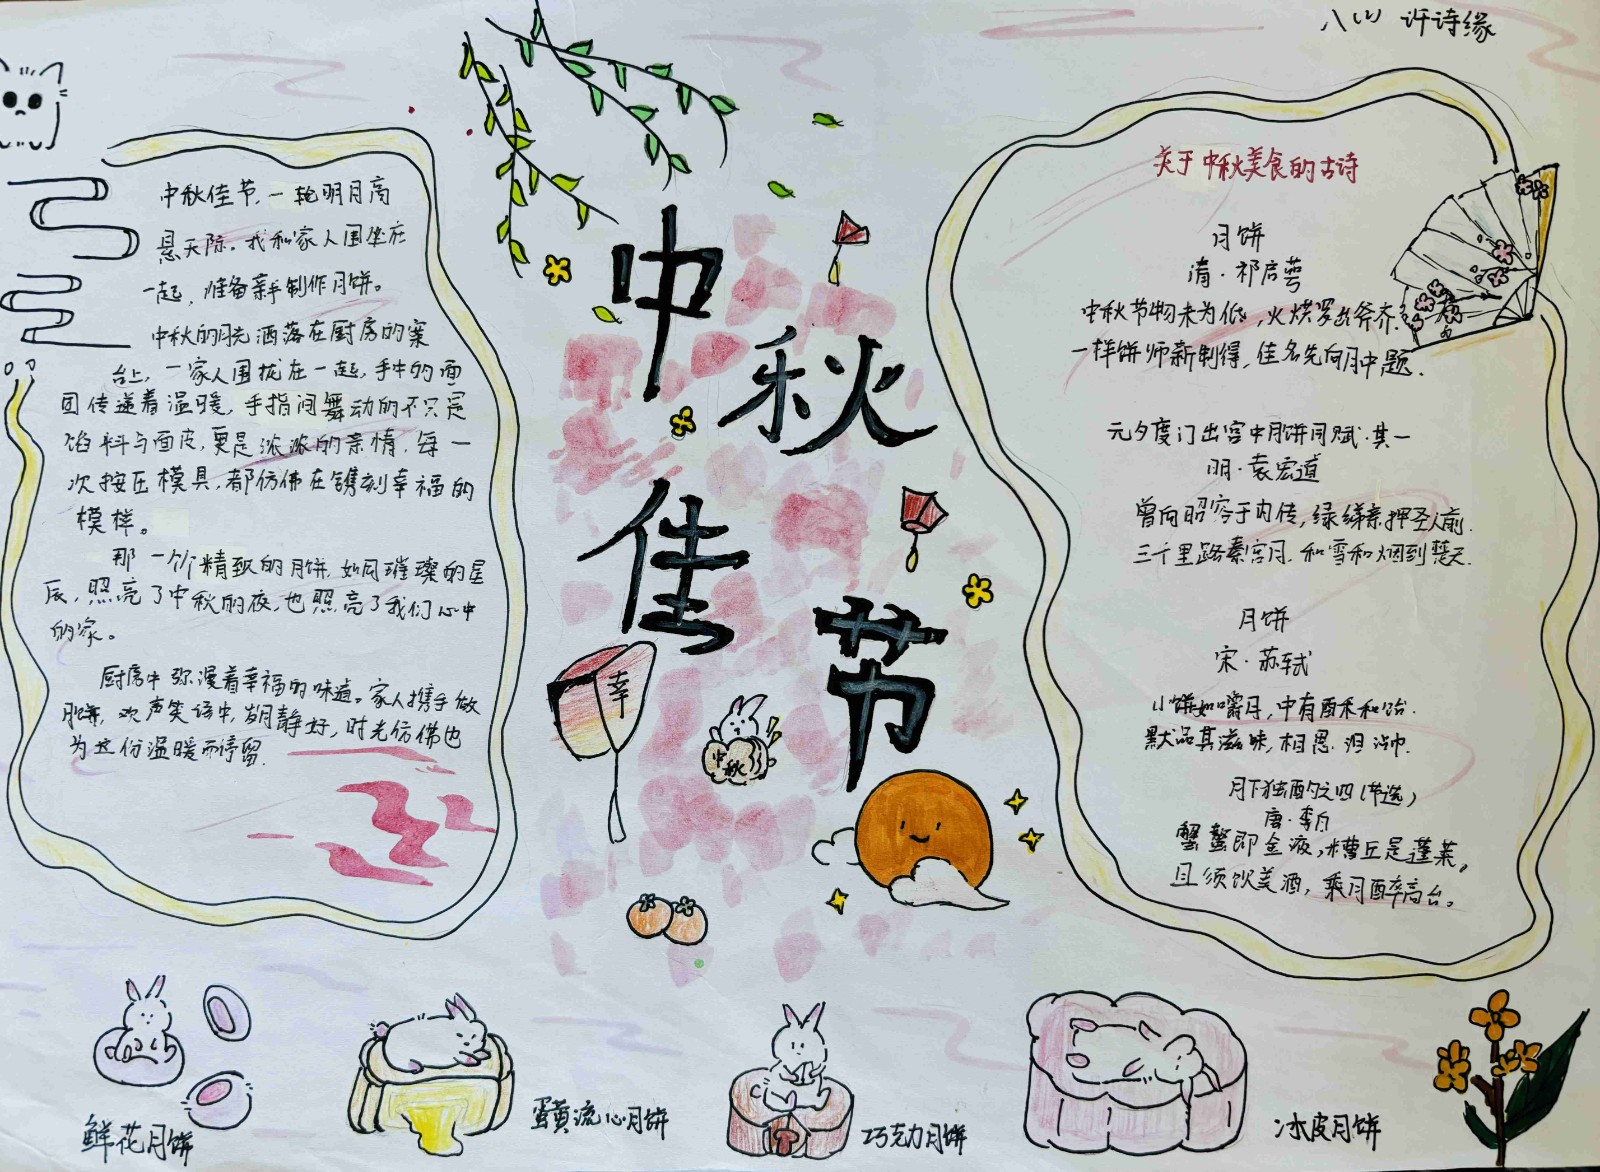 八(4) 许诗缘
中秋佳节
中秋佳节,一轮明月高
悬天际。我和家人围坐在
一起,准备亲手制作月饼。
中秋的月光洒落在厨房的案
台上,一家人围拢在一起,手中的面
团传递着温暖,手指间舞动的不只是
馅料与面皮,更是浓浓的亲情,每一
次按压模具,都仿佛在镌刻幸福的
模样。
那一个个精致的月饼,如同璀璨的星
辰,照亮了中秋的夜,也照亮了我们心中
的家。
厨房中弥漫着幸福的味道。家人携手做
月饼,欢声笑语中,岁月静好,时光仿佛也
为这份温暖而停留.
关于中秋美食的古诗
月饼
清·祁启萼
中秋节物未为低,火烘罗出斧齐.
一样饼师新制得,佳名先向月中题.
元夕度门出宫中月饼同赋·其一
明·袁宏道
曾向昭容于内传,绿绨亲押圣人前.
三千里路秦宫月,和雪和烟到楚天.
月饼
宋·苏轼
小饼如嚼月,中有酥和饴.
默品其滋味,相思泪沾巾.
月下独酌之四(节选)
唐·李白
蟹螯即金液,糟丘是蓬莱。
且须饮美酒,乘月醉高台。
幸
中秋
鲜花月饼
蛋黄流心月饼
巧克力月饼
冰皮月饼